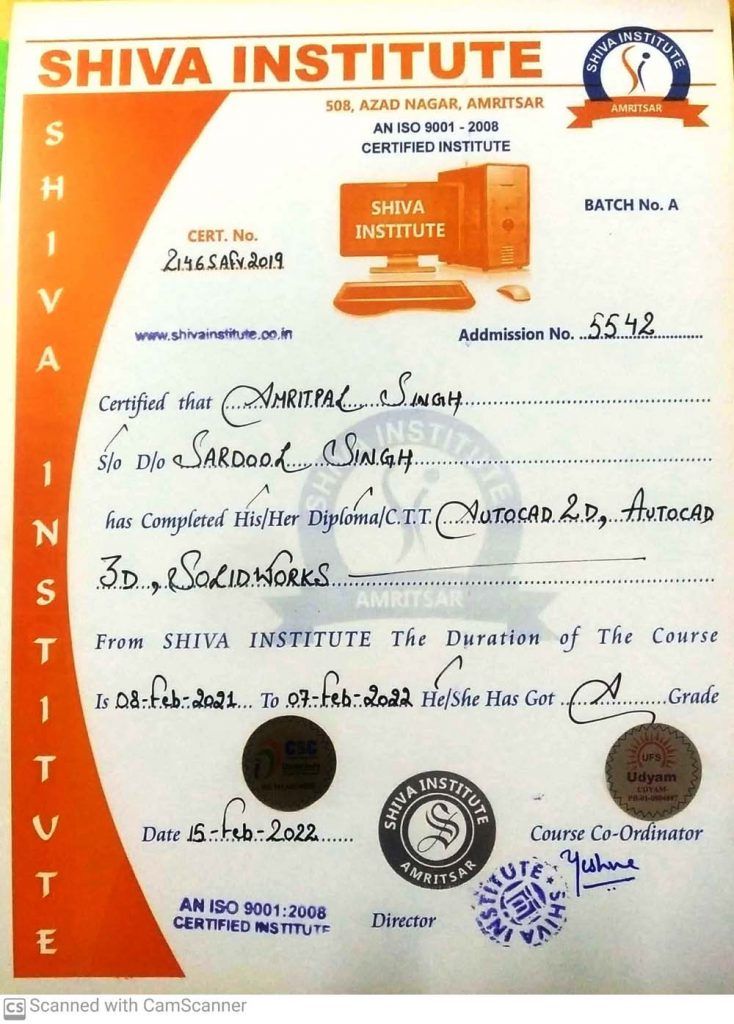 SHIVA INSTITUTE
SHIVA INSTITUTE
AMRITSAR
508, AZAD NAGAR, AMRITSAR
AN ISO 9001 - 2008
CERTIFIED INSTITUTE
SHIVA INSTITUTE
SHIVA
INSTITUTE
BATCH No. A
CERT. No.
2146SAfv2019
www.shivainstitute.co.in
Addmission No. 5542
Certified that AMRITPAL SINGH
S/o D/o SARDOOL SINGH
has Completed His/Her Diploma/C.T.T. AUTOCAD 2D, AUTOCAD
3D, SOLIDWORKS
SHIVA INSTITUTE
AMRITSAR
From SHIVA INSTITUTE The Duration of The Course
Is 08-Feb-2021 To 07-Feb-2022 He/She Has Got A Grade
CSC
UFS
Udyam
UDYAM-
SHIVA INSTITUTE
S
AMRITSAR
Date 15-Feb-2022
Course Co-Ordinator
SHIVA INSTITUTE
AN ISO 9001:2008
CERTIFIED INSTITUTE
Director
CS Scanned with CamScanner